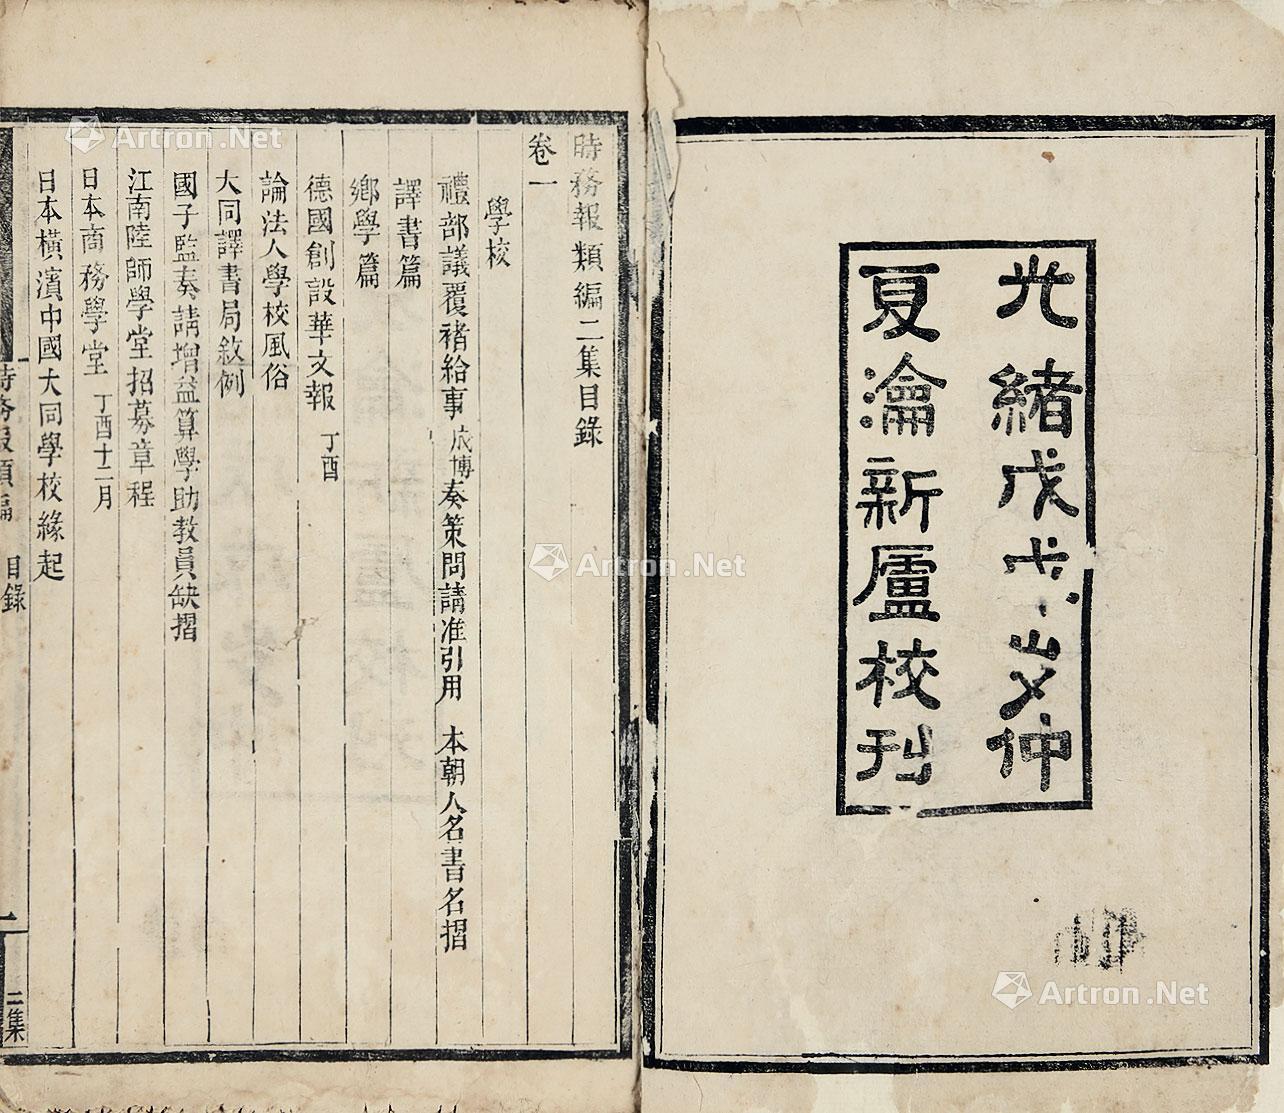 光緒戊戌歲仲
夏瀹新廬校刊
時務報類編二集目錄
卷一
學校
禮部議覆褚給事成博奏策問請准引用 本朝人名書名摺
譯書篇
鄉學篇
德國創設華文報 丁酉
論法人學校風俗
大同譯書局敘例
國子監奏請增益算學助教員缺摺
江南陸師學堂招募章程
日本商務學堂 丁酉十二月
日本橫濱中國大同學校緣起
時務報類編 目錄 一 二集
Artron.Net
Artron.Net
Artron.Net